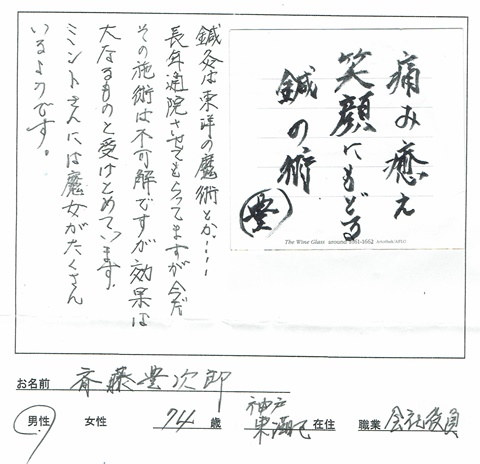 痛み癒え
笑顔にもどる
鍼の術
豊
The Wine Glass around 1661-1662
鍼灸は東洋の魔術とか……
長年通院させてもらってますが今だ
その施術は不可解ですが効果は
大なるものと受けとめています。
ミントさんには魔女がたくさん
いるようです。
お名前 斉藤豊次郎
男性 女性 74歳 神戸東灘区在住 職業 会社役員